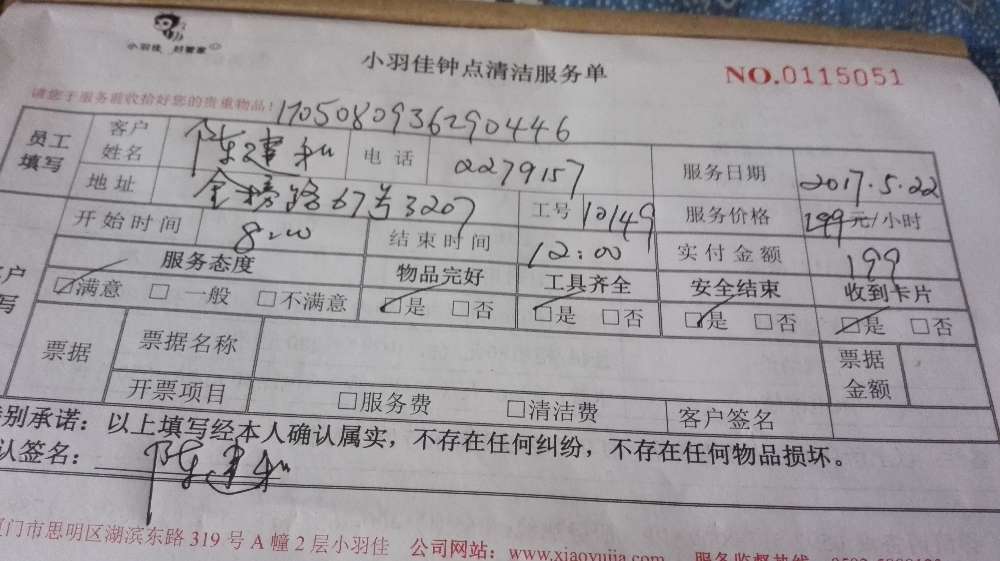 小羽佳 好管家
小羽佳钟点清洁服务单
NO.0115051
请您于服务前收拾好您的贵重物品!
1705080936290446
员工填写 客户姓名 陈建和 电话 2279157 服务日期 2017.5.22
地址 金榜路67号3207 工号 10149 服务价格 199元/小时
开始时间 8:00 结束时间 12:00 实付金额 199
服务态度 物品完好 工具齐全 安全结束 收到卡片
☑满意 □一般 □不满意 ☑是 □否 ☑是 □否 ☑是 □否 ☑是 □否
票据 票据名称 票据金额
开票项目 □服务费 □清洁费 客户签名
别承诺:以上填写经本人确认属实,不存在任何纠纷,不存在任何物品损坏。
认签名: 陈建和
门市思明区湖滨东路 319 号 A 幢 2 层小羽佳 公司网站:www.xiaoyujia.com 服务监督热线